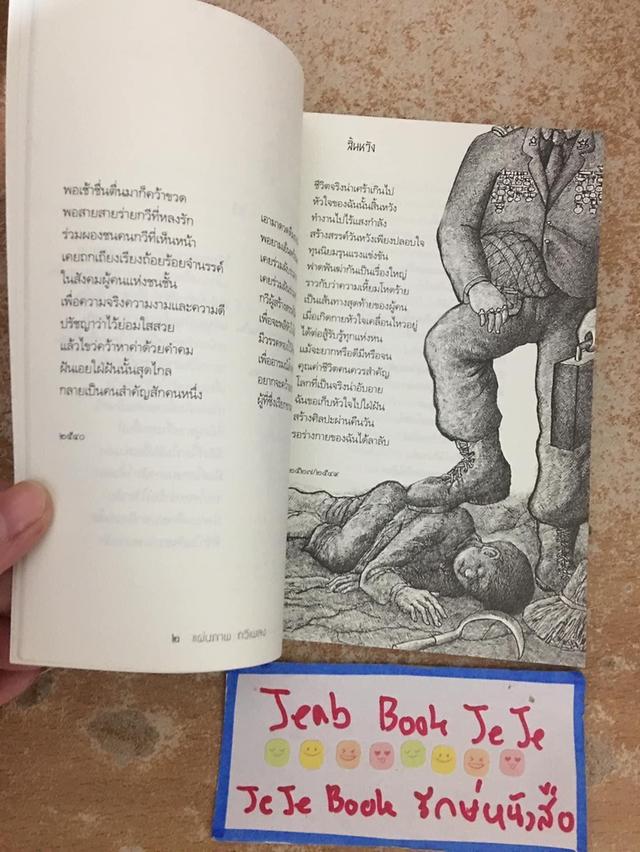 พอเช้าชื่นตื่นมาก็คว้าขวด
พอสายสายร่ายกวีที่หลงรัก
ร่วมผองชนคนกวีที่เห็นหน้า
เคยถกเถียงเรียงถ้อยร้อยจำนรรค์
ในสังคมผู้คนแห่งชนชั้น
เพื่อความจริงความงามและความดี
ปรัชญาว่าไว้ย่อมใสสวย
แล้วไขว่คว้าหาค่าด้วยคำคม
ฝันเอยใฝ่ฝันนั้นสุดไกล
กลายเป็นคนสำคัญสักคนหนึ่ง
๒๕๔๐
๒ แผ่นภาพ กวีเพลง
สิ้นหวัง
ชีวิตจริงน่าเศร้าเกินไป
หัวใจของฉันนั้นสิ้นหวัง
ทำงานไปไร้แสงกำลัง
สร้างสรรค์วันหวังเพียงปลอบใจ
ทุนนิยมรุนแรงแข่งขัน
ฟาดฟันฆ่ากันเป็นเรื่องใหญ่
ราวกับว่าความเหี้ยมโหดร้าย
เป็นเส้นทางสุดท้ายของผู้คน
เมื่อเกิดกายหัวใจเคลื่อนไหวอยู่
ได้ต่อสู้รับรู้ทุกแห่งหน
แม้จะยากหรือดีมีหรือจน
คุณค่าชีวิตคนควรสำคัญ
โลกที่เป็นจริงน่าอับอาย
ฉันขอเก็บหัวใจไปใฝ่ฝัน
สร้างศิลปะผ่านคืนวัน
รอร่างกายของฉันได้ลาลับ
๒๕๒๗/๒๕๔๙
Jeab Book JeJe
JeJe Book รักษ์หนังสือ